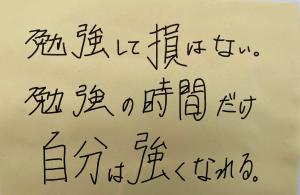 勉強して損はない。
勉強の時間だけ
自分は強くなれる。